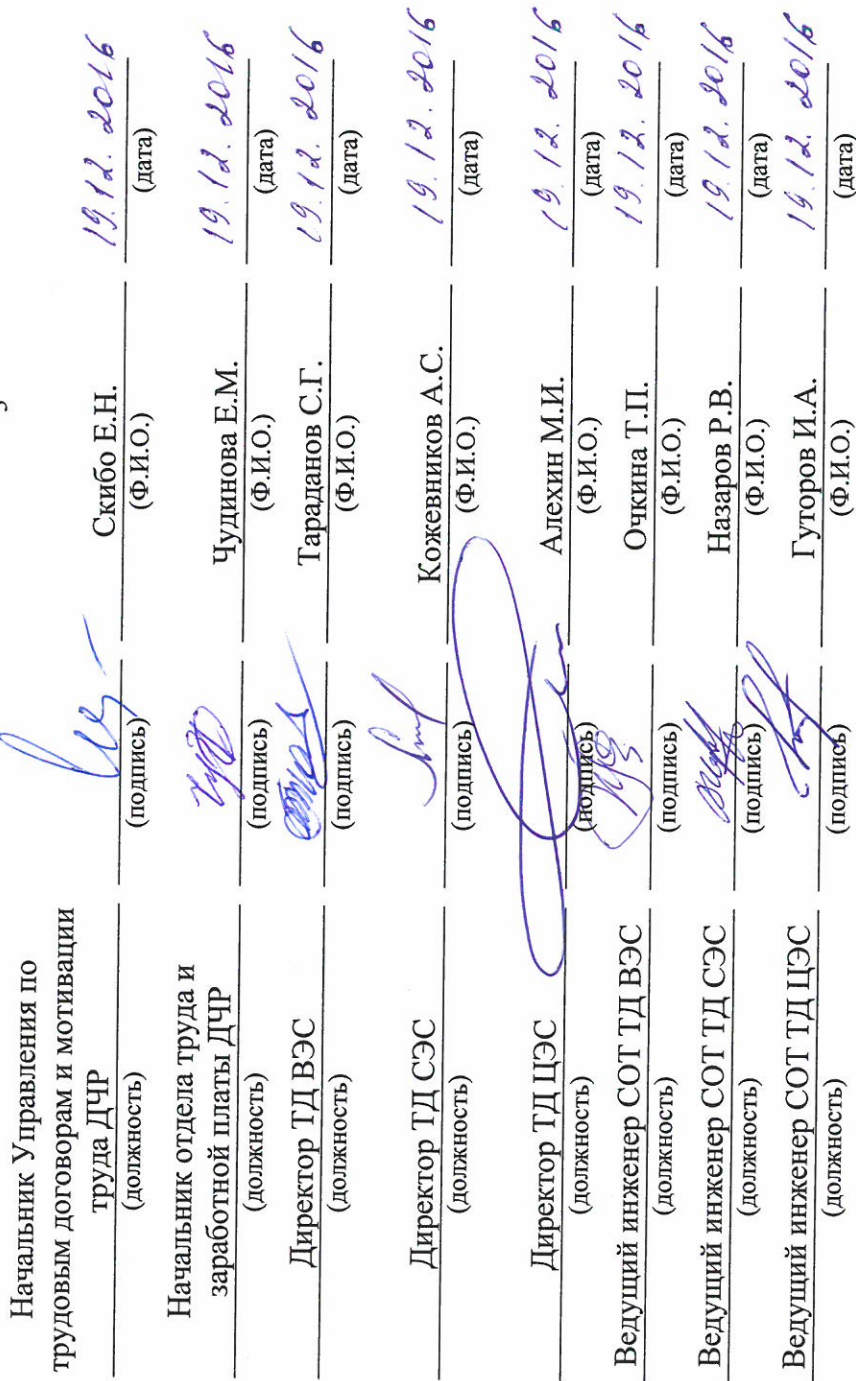 Начальник Управления по
трудовым договорам и мотивации
труда ДЧР Скибо Е.Н. 19.12.2016
(должность) (подпись) (Ф.И.О.) (дата)
Начальник отдела труда и
заработной платы ДЧР Чудинова Е.М. 19.12.2016
(должность) (подпись) (Ф.И.О.) (дата)
Директор ТД ВЭС Тараданов С.Г. 19.12.2016
(должность) (подпись) (Ф.И.О.) (дата)
Директор ТД СЭС Кожевников А.С. 19.12.2016
(должность) (подпись) (Ф.И.О.) (дата)
Директор ТД ЦЭС Алехин М.И. 19.12.2016
(должность) (подпись) (Ф.И.О.) (дата)
Ведущий инженер СОТ ТД ВЭС Очкина Т.П. 19.12.2016
(должность) (подпись) (Ф.И.О.) (дата)
Ведущий инженер СОТ ТД СЭС Назаров Р.В. 19.12.2016
(должность) (подпись) (Ф.И.О.) (дата)
Ведущий инженер СОТ ТД ЦЭС Гуторов И.А. 19.12.2016
(должность) (подпись) (Ф.И.О.) (дата)